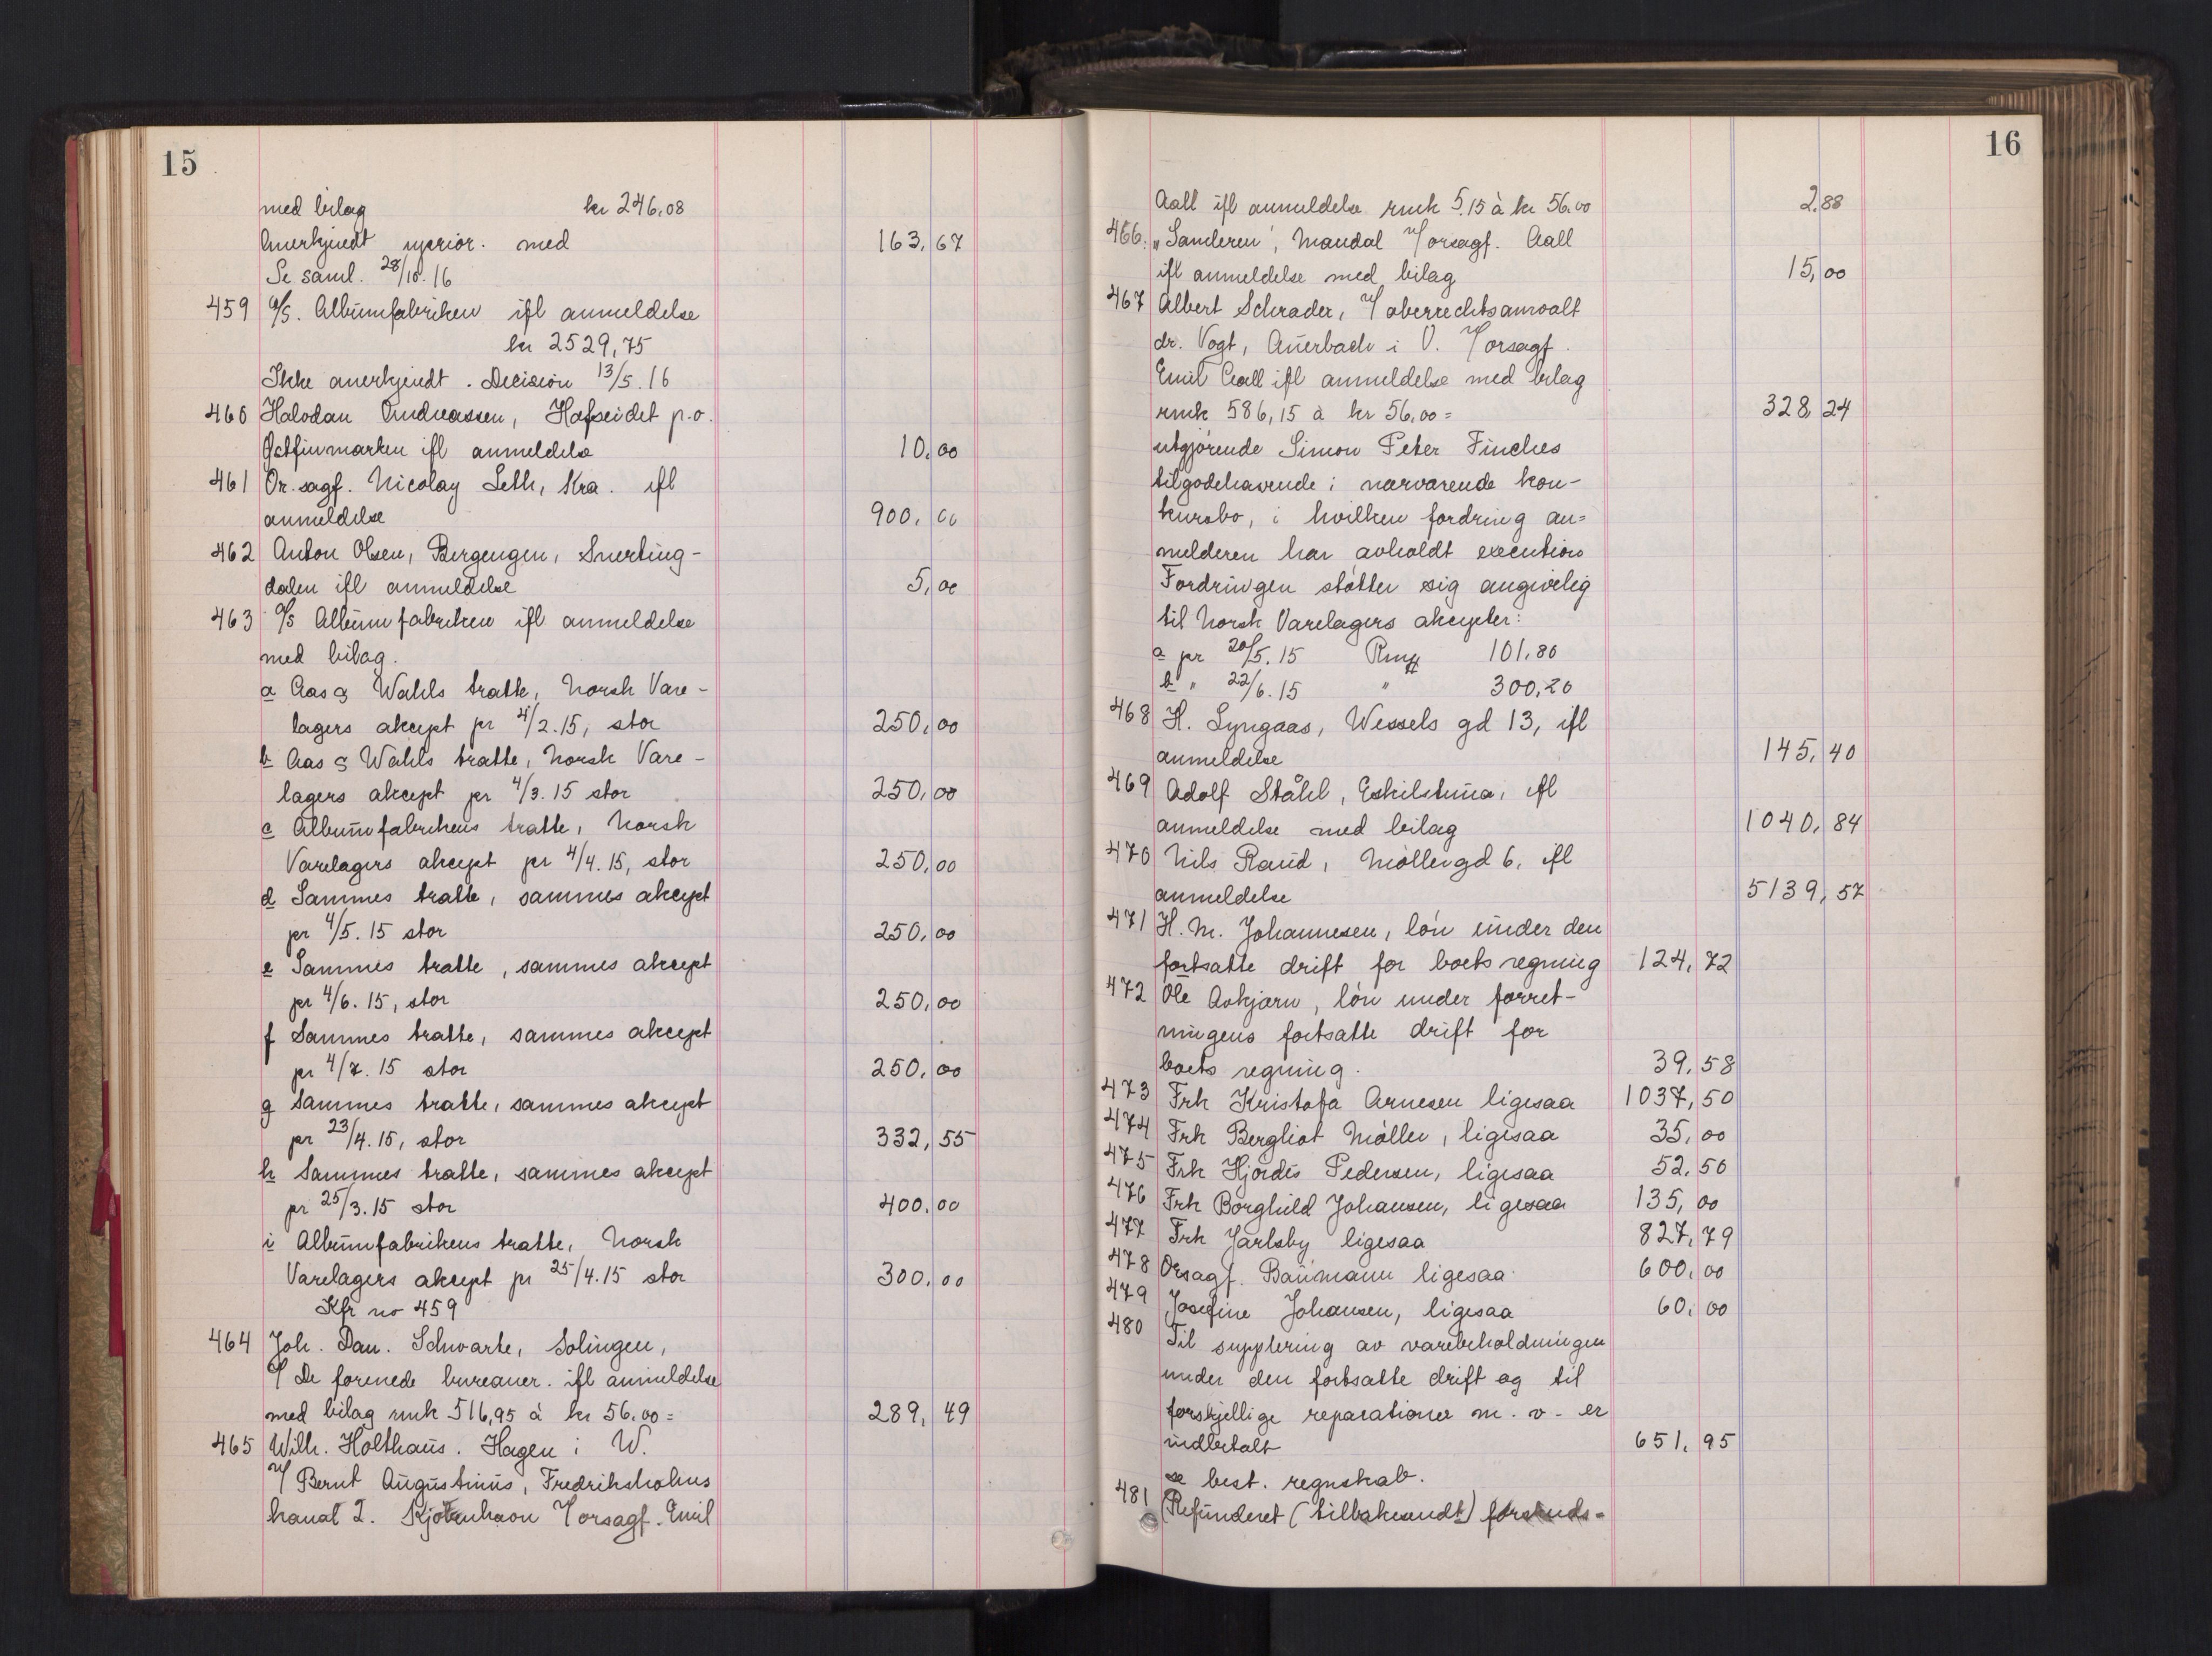 15
med bilag kr 246.08
Anerkjendt uprior. med 163,67
Se saml. 28/10.16
459 A/S. Albumfabriken ifl anmeldelse
kr 2529,75
Ikke anerkjendt. Decision 13/5.16
460 Halvdan Andreassen, Hafseidet p.o.
Østfinmarken ifl anmeldelse 10,00
461 Or.sagf. Nicolay Seth, Kra. ifl
anmeldelse 900,00
462 Anton Olsen, Bergengen, Snerting-
dalen ifl anmeldelse 5,00
463 A/S Albumfabriken ifl anmeldelse
med bilag.
a Aas & Wahls tratte, Norsk Vare-
lagers akcept pr 4/2.15, stor 250,00
b Aas & Wahls tratte, Norsk Vare-
lagers akcept pr 4/3.15 stor 250,00
c Albumfabrikens tratte, Norsk
Varelagers akcept pr 4/4.15, stor 250,00
d Sammes tratte, sammes akcept
pr 4/5.15 stor 250,00
e Sammes tratte, sammes akcept
pr 4/6.15, stor 250,00
f Sammes tratte, sammes akcept
pr 4/7.15 stor 250,00
g Sammes tratte, sammes akcept
pr 23/4.15, stor 332,55
h Sammes tratte, sammes akcept
pr 25/3.15 stor 400,00
i Albumfabrikens tratte, Norsk
Varelagers akcept pr 25/4.15 stor 300,00
Kfr no 459
464 Joh. Dan. Schwarte, Solingen,
v/ De forenede bureauer. ifl anmeldelse
med bilag rmk 516,95 à kr 56.00 = 289,49
465 Wilh. Holthaus. Hagen i W.
v/ Bernt Augustinus, Fredriksholms
kanal 2. Kjøbenhavn v/ orsagf. Emil
16
Aall ifl anmeldelse rmk 5.15 à kr 56.00 2.88
466. "Sanderen", Mandal v/ orsagf. Aall
ifl anmeldelse med bilag 15,00
467 Albert Schrader, v/ oberrechtsanwalt
dr. Vogt, Auerbach i V. v/ orsagf.
Emil Aall ifl anmeldelse med bilag
rmk 586,15 à kr 56.00 = 328,24
utgjørende Simon Peter Finches
tilgodehavende i nærværende kon-
kursbo, i hvilken fordring an=
melderen har avholdt execution
Fordringen støtter sig angivelig
til Norsk Varelagers akcepter:
a pr 20/5.15 Rmk 101.80
b " 22/6.15 " 300,20
468 H. Lyngaas, Wessels gd 13, ifl
anmeldelse 145,40
469 Adolf Ståhl, Eskilstuna, ifl
anmeldelse med bilag 1040,84
470 Nils Raud, Møllergd 6, ifl
anmeldelse 5139,57
471 H. M. Johannesen, løn under den
fortsatte drift for boets regning 124,72
472 Ole Askjærn, løn under forret-
ningens fortsatte drift for
boets regning. 39,58
473 Frk Kristofa Arnesen ligesaa 1037,50
474 Frk Bergliot Møller, ligesaa 35,00
475 Frk Hjørdis Pedersen, ligesaa 52,50
476 Frk Borghild Johansen, ligesaa 135,00
477 Frk Jarlsby ligesaa 827,79
478 Orsagf. Baumann ligesaa 600,00
479 Josefine Johansen, ligesaa 60,00
480 Til supplering av varebeholdningen
under den fortsatte drift og til
forskjellige reparationer m.v. er
indbetalt 651,95
se best. regnskab.
481 Refunderet (tilbakesendt) forskuds-